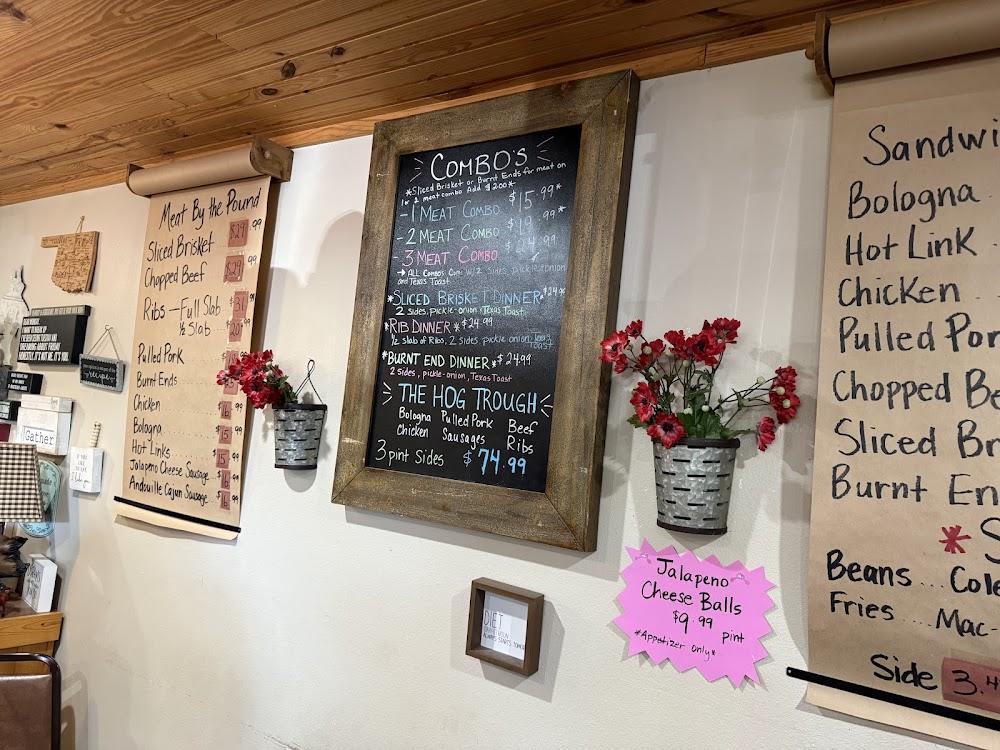 Meat By the Pound
Sliced Brisket $29.99
Chopped Beef $29.99
Ribs — Full Slab $31.99
½ Slab $20.99
Pulled Pork
Burnt Ends
Chicken $16.99
Bologna $15.99
Hot Links $15.99
Jalapeno Cheese Sausage $16.99
Andouille Cajun Sausage $16.99
Gather
COMBO'S
*Sliced Brisket or Burnt Ends for meat on
1 or 2 meat combo Add $2.00*
- 1 MEAT COMBO $15.99*
- 2 MEAT COMBO $19.99*
- 3 MEAT COMBO $24.99
→ ALL Combos Come W/ 2 Sides, pickle-onion
and Texas Toast
*SLICED BRISKET DINNER* $24.99
2 sides, pickle-onion, Texas Toast
*RIB DINNER* $24.99
½ slab of Ribs, 2 sides, pickle onion, Texas
Toast
*BURNT END DINNER* $24.99
2 sides, pickle-onion, Texas Toast
THE HOG TROUGH
Bologna Pulled Pork Beef
Chicken Sausages Ribs
3 pint Sides $74.99
DIET
ALWAYS STARTS
Jalapeno
Cheese Balls
$9.99 pint
*Appetizer only*
Sandwi
Bologna
Hot Link
Chicken
Pulled Por
Chopped Be
Sliced Br
Burnt En
* S
Beans ... Cole
Fries .... Mac-
Side 3.4